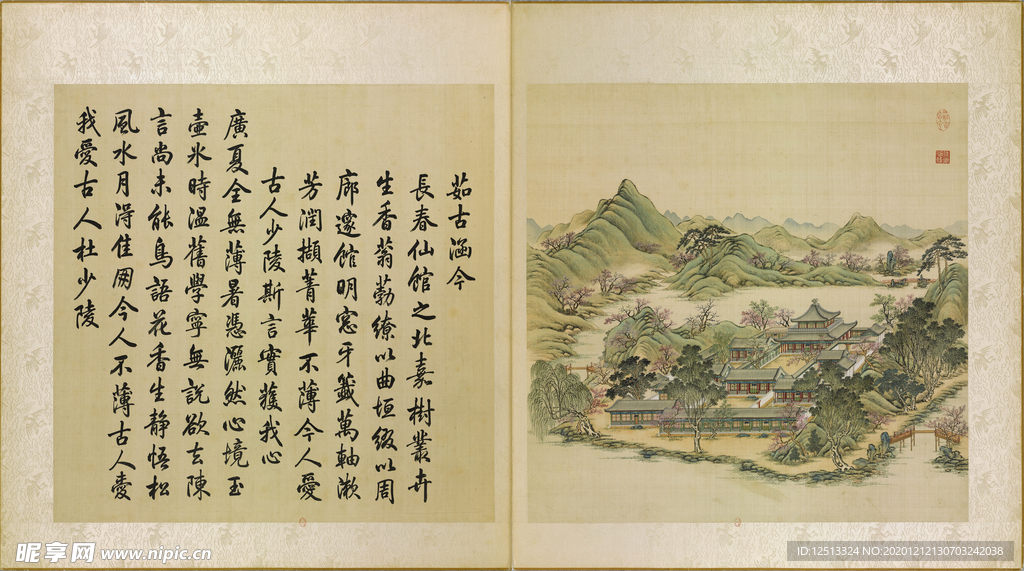 茹古涵今
長春仙館之北嘉樹叢卉
生香蓊葧繚以曲垣綴以周
廊邃館明窓牙籤萬軸漱
芳潤擷菁華不薄今人愛
古人少陵斯言實獲我心
廣夏全無薄暑憑灑然心境玉
壺氷時溫舊學寧無說欲去陳
言尚未能鳥語花香生静悟松
風水月淂佳朋今人不薄古人愛
我愛古人杜少陵
昵享网 www.nipic.cn
ID:12513324 NO:20201212130703242038